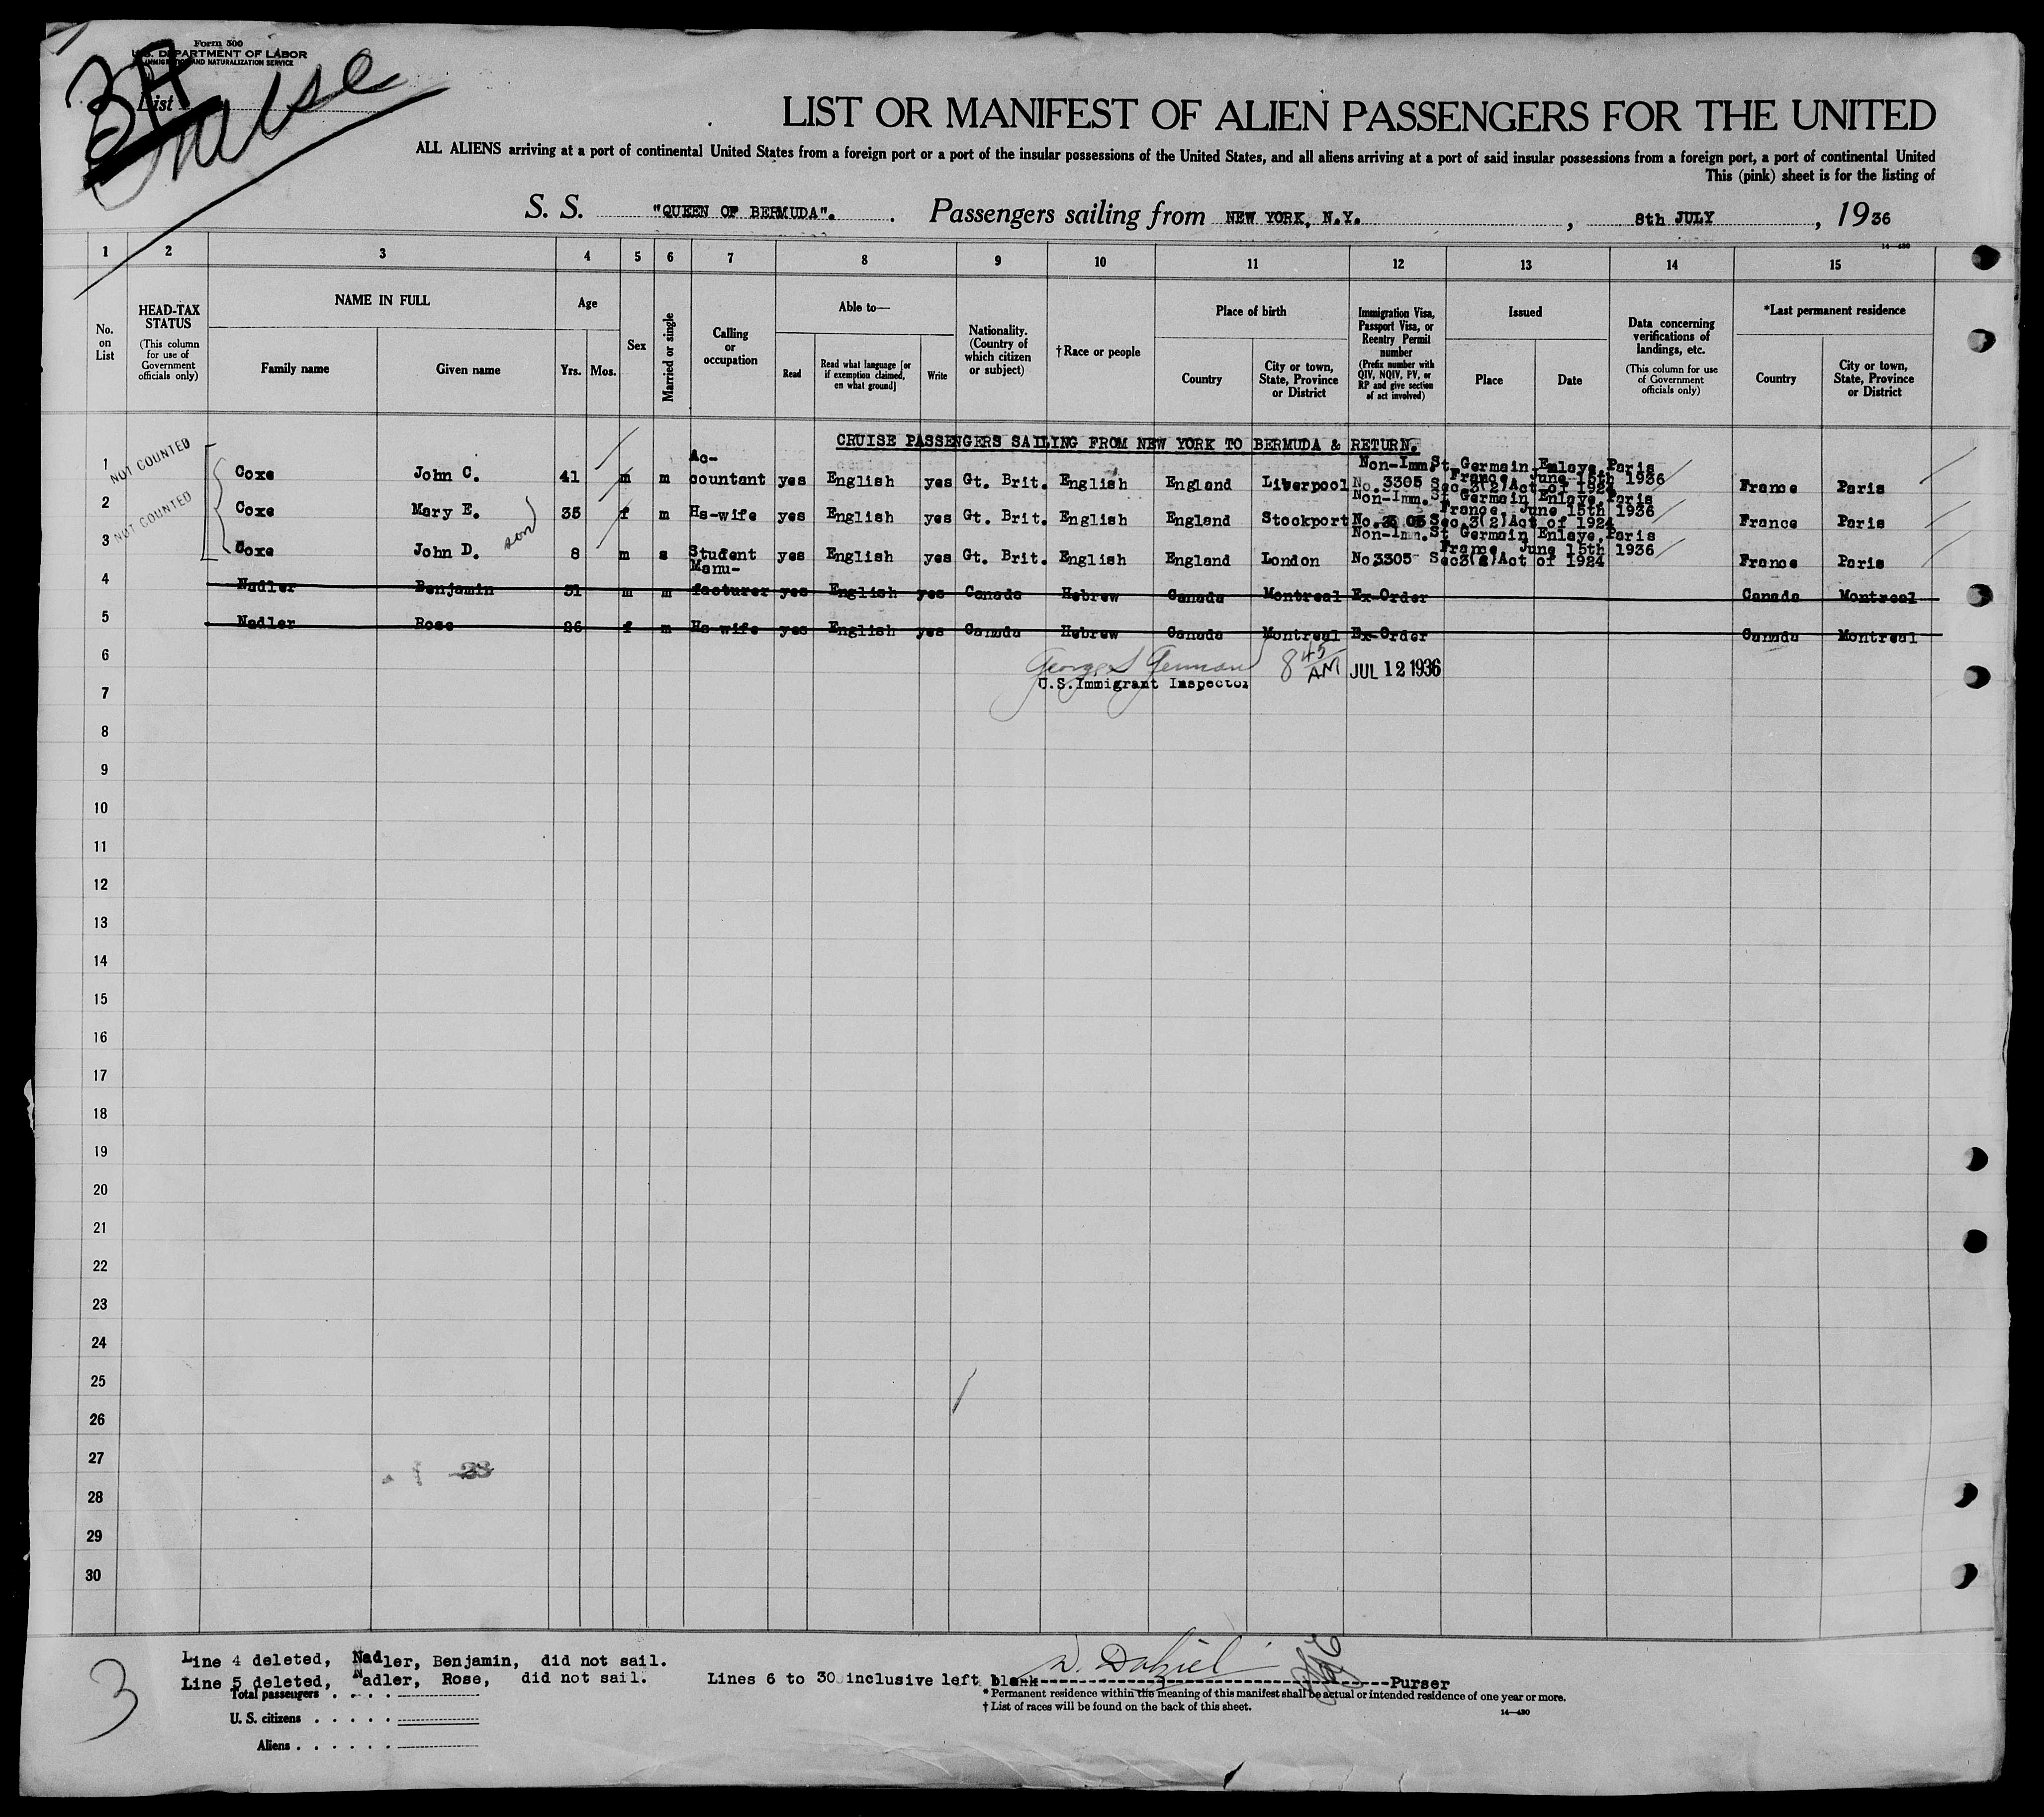 Form 500
U.S. DEPARTMENT OF LABOR
IMMIGRATION AND NATURALIZATION SERVICE
List
Cruise
LIST OR MANIFEST OF ALIEN PASSENGERS FOR THE UNITED
ALL ALIENS arriving at a port of continental United States from a foreign port or a port of the insular possessions of the United States, and all aliens arriving at a port of said insular possessions from a foreign port, a port of continental United
This (pink) sheet is for the listing of
S. S. "QUEEN OF BERMUDA". Passengers sailing from NEW YORK, N.Y., 8th JULY, 1936
14—430
1 2 3 4 5 6 7 8 9 10 11 12 13 14 15
No. on List
HEAD-TAX STATUS (This column for use of Government officials only)
NAME IN FULL
Family name Given name
Age
Yrs. Mos.
Sex
Married or single
Calling or occupation
Able to—
Read
Read what language [or if exemption claimed, on what ground]
Write
Nationality. (Country of which citizen or subject)
†Race or people
Place of birth
Country
City or town, State, Province or District
Immigration Visa, Passport Visa, or Reentry Permit number (Prefix number with QIV, NQIV, PV, or RP and give section of act involved)
Issued
Place Date
Data concerning verifications of landings, etc. (This column for use of Government officials only)
*Last permanent residence
Country
City or town, State, Province or District
CRUISE PASSENGERS SAILING FROM NEW YORK TO BERMUDA & RETURN.
NOT COUNTED
1 Coxe John C. 41 m m Ac-countant yes English yes Gt. Brit. English England Liverpool Non-Imm. No. 3305 St Germain Enlaye, Paris France, June 15th 1936 Sec 3(2) Act of 1924 France Paris
NOT COUNTED
2 Coxe Mary E. 35 f m Hs-wife yes English yes Gt. Brit. English England Stockport Non-Imm. No. 3305 St Germain Enlaye, Paris France, June 15th 1936 Sec 3(2) Act of 1924 France Paris
3 Coxe John D. son 8 m s Student yes English yes Gt. Brit. English England London Non-Imm. No 3305 St Germain Enlaye, Paris France, June 15th 1936 Sec 3(2) Act of 1924 France Paris
4 Nadler Benjamin 31 m m Manu-facturer yes English yes Canada Hebrew Canada Montreal Ex-Order Canada Montreal
5 Nadler Rose 26 f m Hs-wife yes English yes Canada Hebrew Canada Montreal Ex-Order Canada Montreal
6 8 45 AM JUL 12 1936
U.S.Immigrant Inspector
7
8
9
10
11
12
13
14
15
16
17
18
19
20
21
22
23
24
25
26
27
28
29
30
3
Line 4 deleted, Nadler, Benjamin, did not sail.
Line 5 deleted, Nadler, Rose, did not sail. Lines 6 to 30 inclusive left blank Purser
Total passengers
U. S. citizens
Aliens
* Permanent residence within the meaning of this manifest shall be actual or intended residence of one year or more.
† List of races will be found on the back of this sheet.
14—430